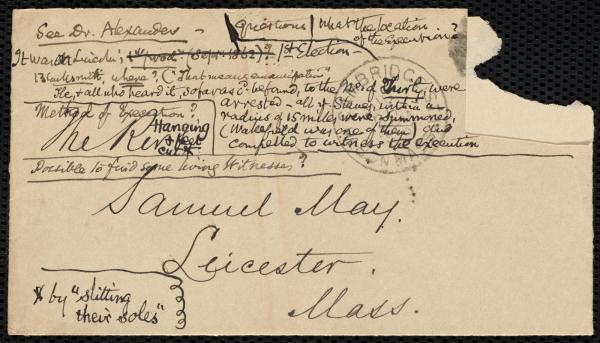 See Dr. Alexander - Questions | What the location
of the Execution?
It was in Lincoln's "prod" (Sept. 1862)? 1st Election -
Blacksmith, where? ("That means emancipation"
He, & all who heard it, so far as cd be found, to the No. of Thirty, were
arrested - all ye Slaves, within a
radius of 15 miles were summoned,
(Wakefield was one of them) and
compelled to witness the execution
Method of Execution?
Hanging
& feet
cut *
The Rev.
Possible to find some living Witnesses?
BRIDGE
MASS
Samuel May.
Leicester.
Mass.
* by "slitting
their soles"